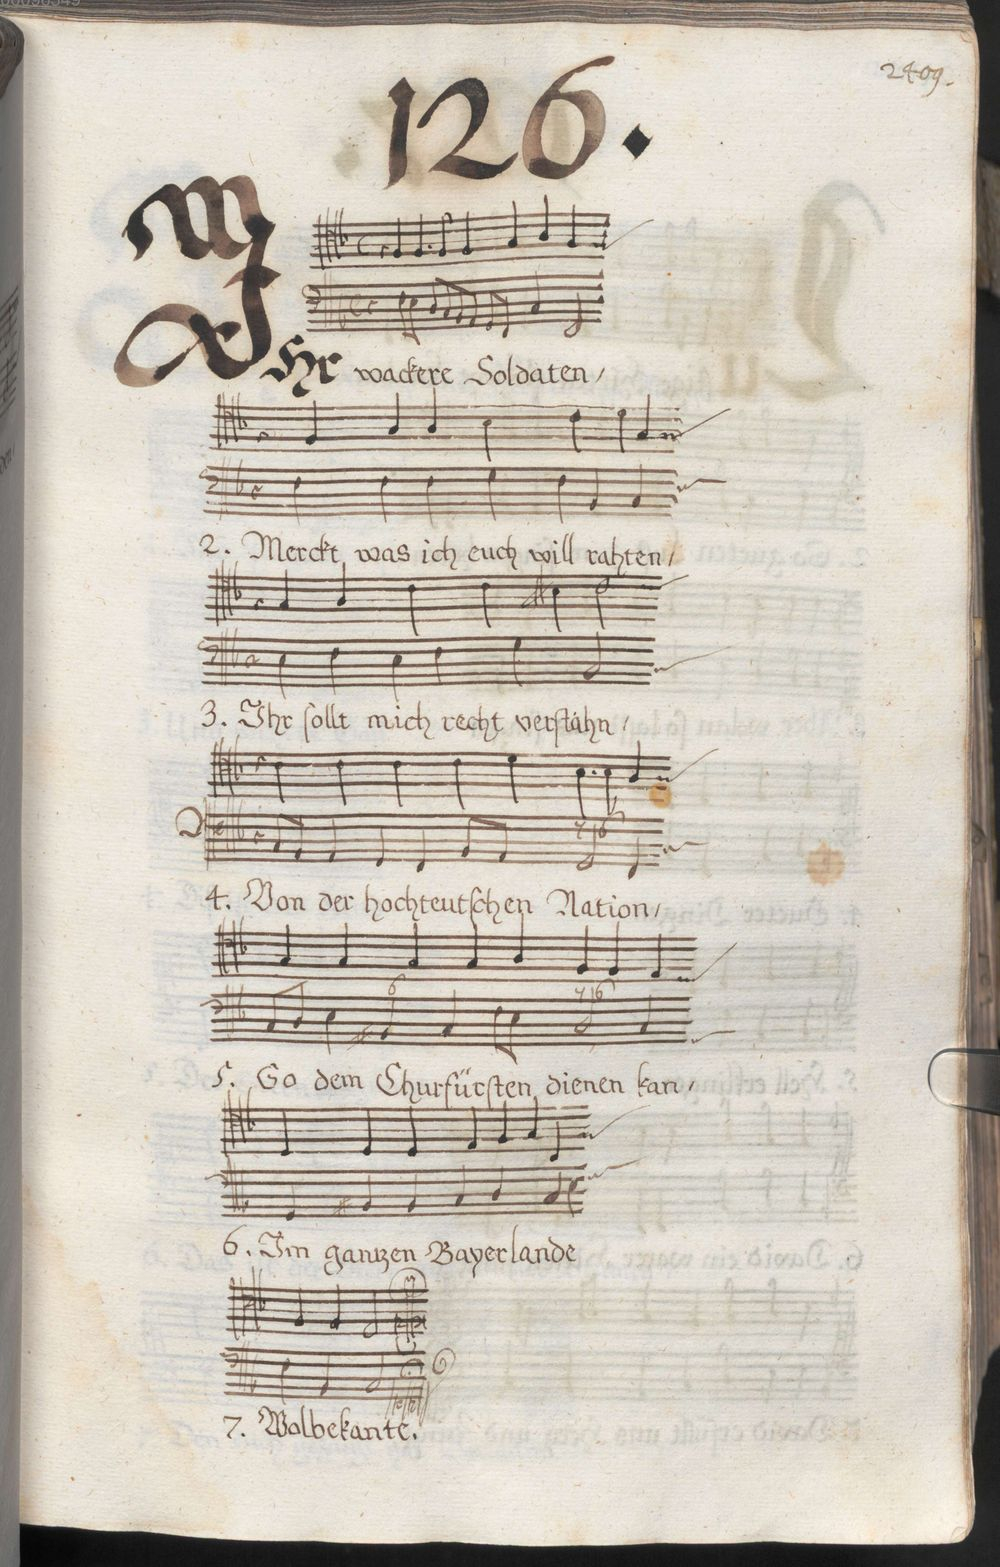 2409.
.126.
IHr wackere Soldaten/
2. Merckt was ich euch will rahten/
3. Ihr sollt mich recht verstahn/
4. Von der hochteutschen Nation/
5. So dem Churfürsten dienen kan/
6. Im gantzen Bayerlande
7. Wolbekante.